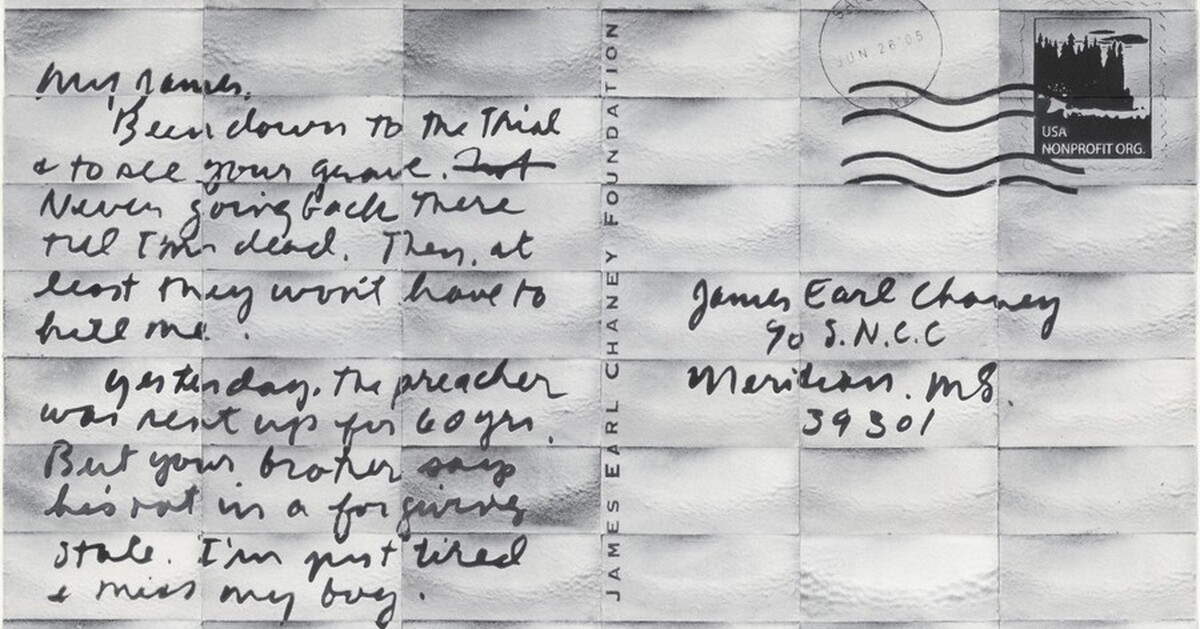 My James,
Been down to the Trial
& to see your grave. Not
Never going back there
till I'm dead. Then, at
least they won't have to
kill me.
yesterday, the preacher
was sent up for 60 yrs.
But your brother says
he's not in a forgiving
state. I'm just tired
& miss my boy.
JAMES EARL CHANEY FOUNDATION
JUN 26 '05
USA
NONPROFIT ORG.
James Earl Chaney
c/o S.N.C.C
Meridian, MS.
39301